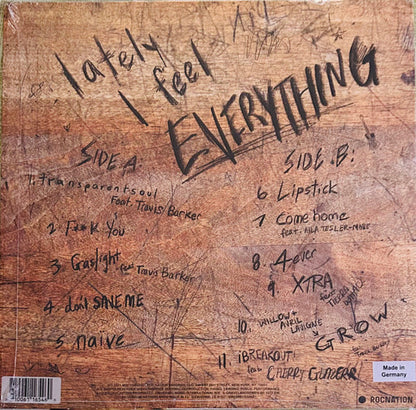 lately
I feel
EVERYTHING
SIDE A
1. transparentsoul
feat. Travis Barker
2 F**K You
3 Gaslight feat Travis Barker
4 don't SAVE ME
5 naïve
SIDE B:
6 Lipstick
7 Come home
feat. AYLA TESLER-MABE
8. 4ever
9. XTRA
feat. TIERRA WHACK
10. WILLOW & AVRIL LAVIGNE
GROW
feat. Travis Barker
11 ¡BREAKOUT
feat CHERRY GLAZERR
Made in
Germany
ROCNATION